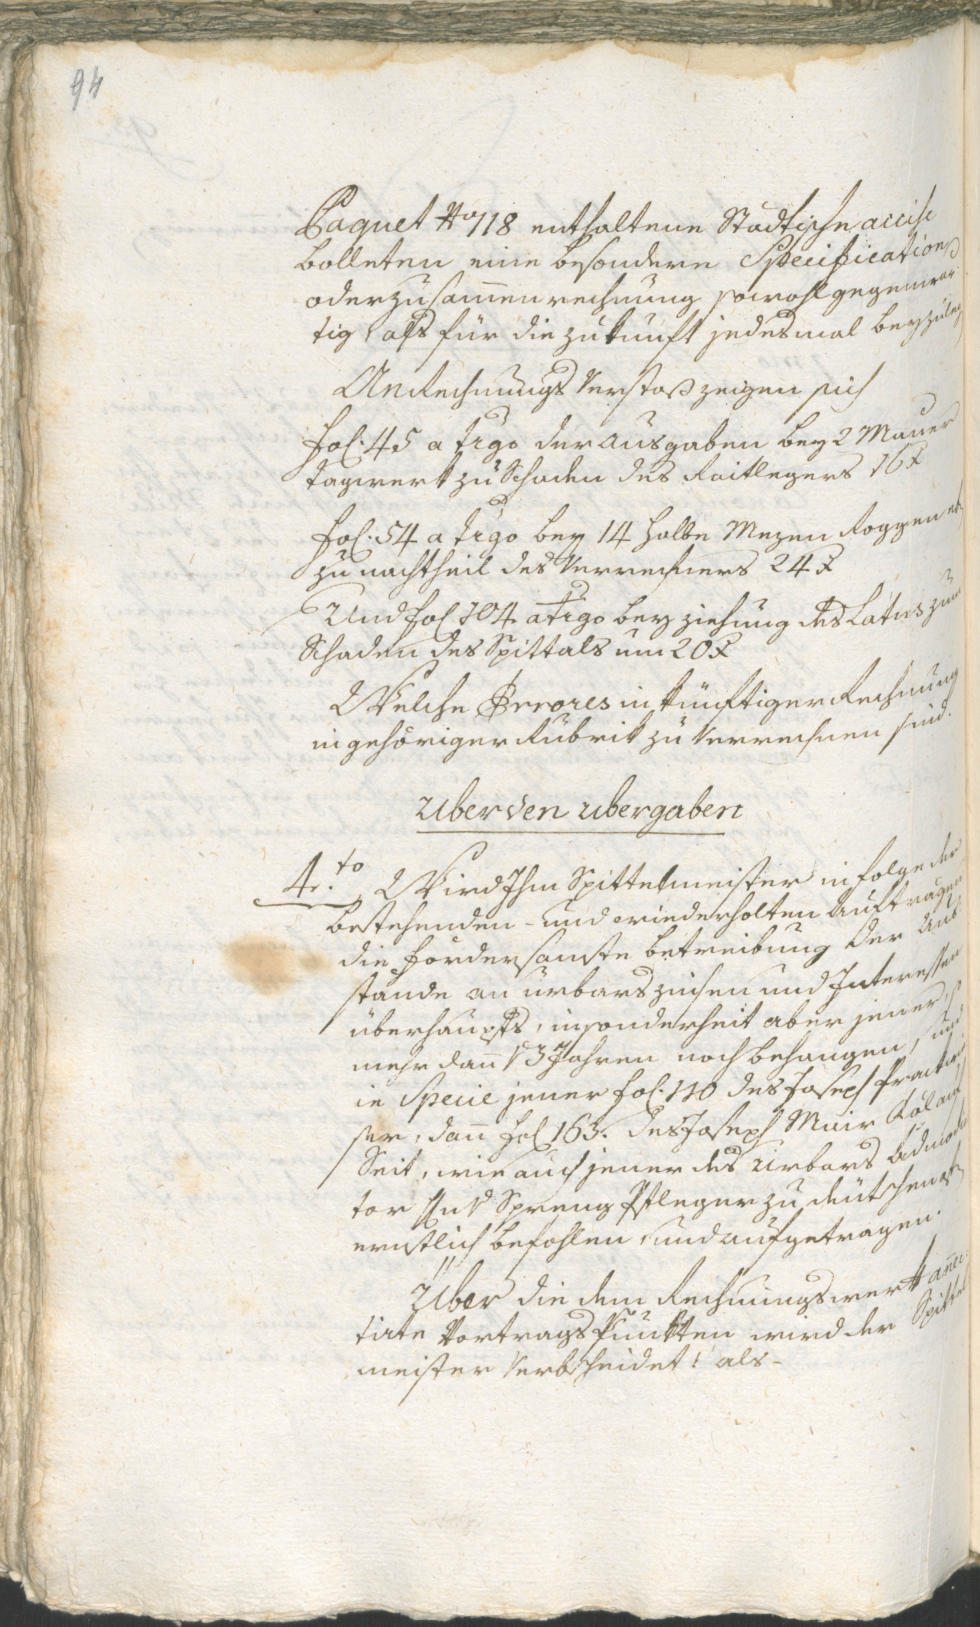 94
Paquet No 118 enthaltene Stadtische accise
bolleten eine besondere Specification,
oder zusam̄enrechnung sowohl gegenwär
tig, als für die zukunft jedesmal beyzuleg
An Rechnungs Verstoß zeigen sich
fol. 45 a tergo der ausgaben bey 2 Maurer
tagwerk zu Schaden des Raitlegers 16 x
fol. 54 a tergo bey 14 halbe Mezen Roggen
zu nachtheil des Verrechners 24 x
Und fol 104 a tergo bey ziehung des Latus zum
Schaden des Spittals um 20 x
Welche Errores in künftiger Rechnung
in gehöriger Rubrik zu verrechnen sind.
Uber den ubergaben
4.to Wird Ihm Spittelmeister in folge der
bestehenden - und wiederholten Aufträgen
die fördersamste betreibung der Aus
stände an urbarszinsen und Interessen
überhaupts, insonderheit aber jener, so
mehr dan̄ 3 Jahren noch behangen, und
in Specie jener fol. 110 des Joseph
ser, dan̄ fol 163. des Joseph Muir
Seit, wie auch jener des urbars
tor Spreng Pfleger zu
ernstlich befohlen, und aufgetragen.
Über die dem Rechnungswerk an̄ec
tirte Vortrags Punkten wird der Spittel
meister verbscheidet: als -